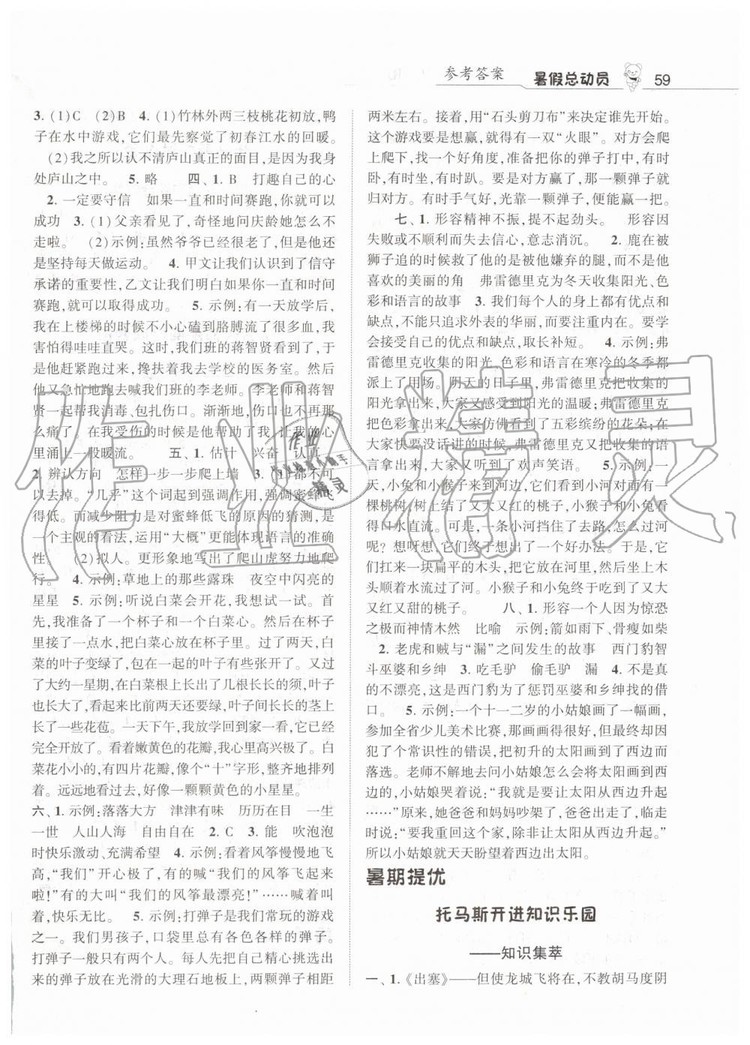 参考答案 暑假总动员 59
3. (1)C (2)B 4. (1)竹林外两三枝桃花初放,鸭
子在水中游戏,它们最先察觉了初春江水的回暖。
(2)我之所以认不清庐山真正的面目,是因为我身
处庐山之中。 5. 略 四、1. B 打趣自己的心
2. 一定要守信 如果一直和时间赛跑,你就可以
成功 3. (1)父亲看见了,奇怪地问庆龄她怎么不
走啦。 (2)示例:虽然爷爷已经很老了,但是他还
是坚持每天做运动。 4. 甲文让我们认识到了信守
承诺的重要性,乙文让我们明白如果一直和时间赛
跑,就可以取得成功。 5. 示例:有一次放学后,我
在上楼梯的时候不小心磕到胳膊流了很多血,我
害怕得哇哇直哭。这时,我们班的蒋智贤看到了,于
是他赶紧跑过来,搀扶着我去学校的医务室。然后
他又急忙地跑去喊我们班的李老师。李老师和蒋智
贤一起帮我消毒、包扎伤口。渐渐地,伤口也不再那
么痛了。在我受伤的时候是他帮助了我,我的心
里涌上一股暖流。 五、1. 估计 兴奋 认真
2. 辨认方向 怎样一步一步爬上墙 3. (1)都不可
以去掉。“几乎”这个词起到强调作用,强调蜜蜂飞
得低。而减少阻力是对蜜蜂低飞的原因的猜测,是
一个主观的看法,运用“大概”更能体现语言的准确
性 (2)拟人。更形象地写出了爬山虎努力地爬
行 4. 示例:草地上的那些露珠 夜空中闪亮的
星星 5. 示例:听说白菜会开花,我想试一试。首
先,我准备了一个杯子和一个白菜。然后在杯子里
接了一点水,把白菜放在杯子里。过了两天,白菜
的叶子变绿了,包在一起的叶子有些张开了。又过
了大约一星期,在白菜根上长出了很嫩的叶子,叶子
也变大了,看起来比前两天还要绿,叶子中间还长了
一些花苞。一天下午,我放学回到家一看,它已经
开花了。看着嫩黄色的花瓣,我心里十分开心。白
菜花小小的,有四片花瓣,像个“十”字形,整齐地排列
着。远远地看去,好像一颗颗黄色的小星星。
六、1. 示例:落落大方 津津有味 历历在目 一生
一世 人山人海 自由自在 2. C 3. 能 吹泡泡
时快乐激动、充满希望 4. 示例:看着风筝慢慢地飞
高,我们别提有多高兴了!有的喊“我们的风筝飞起来
啦!”有的大叫“我们的风筝最漂亮!”……喊着叫着,
快乐无比。 5. 示例:打弹子是我们常玩的游戏
之一。我们男孩子,口袋里总有各色各样的弹子。
来的弹子放在光滑的大理石地板上,两颗弹子相距
两米左右。接着,用“石头剪刀布”来决定谁先开始。
这个游戏要是想赢,就得有一双“火眼”。对方会爬
上爬下,有时候姿势好,准备把你的弹子打中,有时
卧,有时趴,有时坐。要是对方赢了,那一颗弹子就
归对方。有时手气好,光看姿势,便能赢一把。
七、1. 形容精神不振,提不起劲头。 形容因
失败或不顺利而失去信心,意志消沉。 2. 鹿在被
狮子追的时候救了他的是被他嫌弃的腿,而不是他
喜欢的美丽的角 弗雷德里克为冬天收集阳光、色
彩和语言的故事 3. 我们每个人的身上都有优点和
缺点,不能只追求外表的华丽,而要注重实用。要学
会接受自己的优点和缺点,取长补短。 4. 示例:弗
雷德里克收集的阳光、色彩和语言在寒冷的冬季都
派上了用场。阴天的日子里,弗雷德里克把收集的
阳光拿出来,大家又感受到了阳光的温暖;弗雷德里克
把收集的颜色拿出来,大家仿佛看到了五彩缤纷的花朵;在
大家无话可说的时候,弗雷德里克把收集的语言拿
出来,大家又听到了欢声笑语。 5. 示例:一天,
小兔和小猴子来到了小河边,它们看到小河对面有一
棵桃树,树上结了又大又红的桃子,小猴子和小兔得
口水直流。可是,一条小河挡住了去路,怎么过河
呢?突然,它们想出了一个好办法。于是,它
们扛来一块扁平的木头,把它放在河里,就这样木
头顺着水流漂了过去。小猴子和小兔终于吃到了又大
又红又甜的桃子。 八、1. 形容人因为惊恐
之极而神情木然 比喻 示例:箭如雨下、骨瘦如柴
2. 老虎和贼与“漏”之间发生的故事 西门豹智
斗巫婆和乡绅 3. 吃毛驴 偷毛驴 漏 4. 不是真
的不漂亮,这是西门豹为了惩罚巫婆和乡绅找的借
口。 5. 示例:一个十一二岁的小姑娘画了一幅画,
参加全省少儿美术比赛,那画画得非常好,但最终却因
犯了个常识性的错误,把初升的太阳画到了西边而
落选。老师不解地问小姑娘怎么会将太阳画到西边
……“原来,她爸爸和妈妈吵架了,爸爸出走了,临走
时说:“要我重回这个家,除非让太阳从西边升起。”
所以小姑娘就天天盼望着西边出太阳。
暑期提优
托马斯开进知识乐园
——知识集萃
一、1.《出塞》——但使龙城飞将在,不教胡马度阴
作业精灵